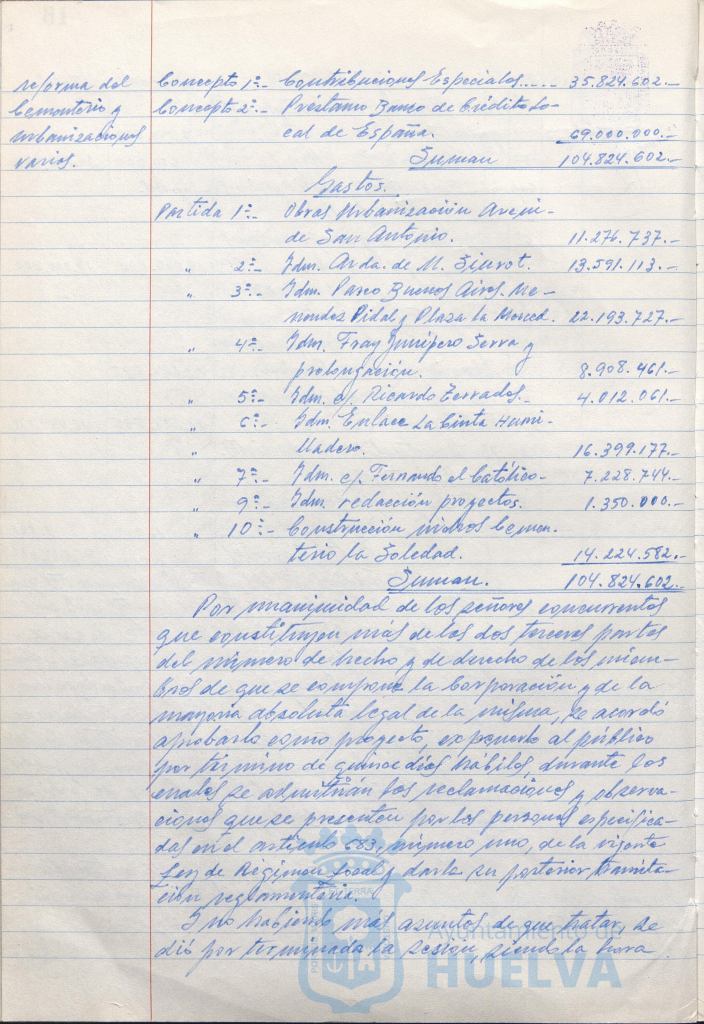 reforma del
Cementerio y
urbanizaciones
varias.
Concepto 1º.- Contribuciones Especiales..... 35.824.602.-
Concepto 2º.- Préstamo Banco de Crédito Lo-
cal de España. 69.000.000.-
Suman 104.824.602.-
Gastos.
Partida 1ª.- Obras Urbanización Aveni-
da San Antonio. 11.276.737.-
" 2ª.- Idm. Avda. de M. Siurot. 13.591.113.-
" 3ª.- Idm. Paseo Buenos Aires. Me-
nendez Pidal y Plaza la Merced. 22.193.727.-
" 4ª.- Idm. Fray Junípero Serra y
prolongación. 8.908.461.-
" 5ª.- Idm. c/. Ricardo Terrades.- 4.012.061.-
" 6ª.- Idm. Enlace La Cinta Humi-
" lladero. 16.399.177.-
" 7ª.- Idm. c/. Fernando el Católico- 7.228.744.-
" 9ª.- Idm. redacción proyectos. 1.350.000.-
" 10ª.- Construcción nichos Cemen-
terio la Soledad. 14.224.582.-
Suman. 104.824.602.-
Por unanimidad de los señores concurrentes
que constituyen más de las dos terceras partes
del número de hecho y de derecho de los miem-
bros de que se compone la Corporación y de la
mayoría absoluta legal de la misma, se acordó
aprobarlo como proyecto, exponerlo al público
por término de quince días hábiles, durante los
cuales se admitirán las reclamaciones y observa-
ciones que se presenten por las personas especifica-
das en el artículo 683, número uno, de la vigente
Ley de Régimen Local y darle su posterior tramita-
ción reglamentaria.
Y no habiendo más asuntos de que tratar, se
dió por terminada la sesión, siendo la hora
Ayuntamiento de
HUELVA